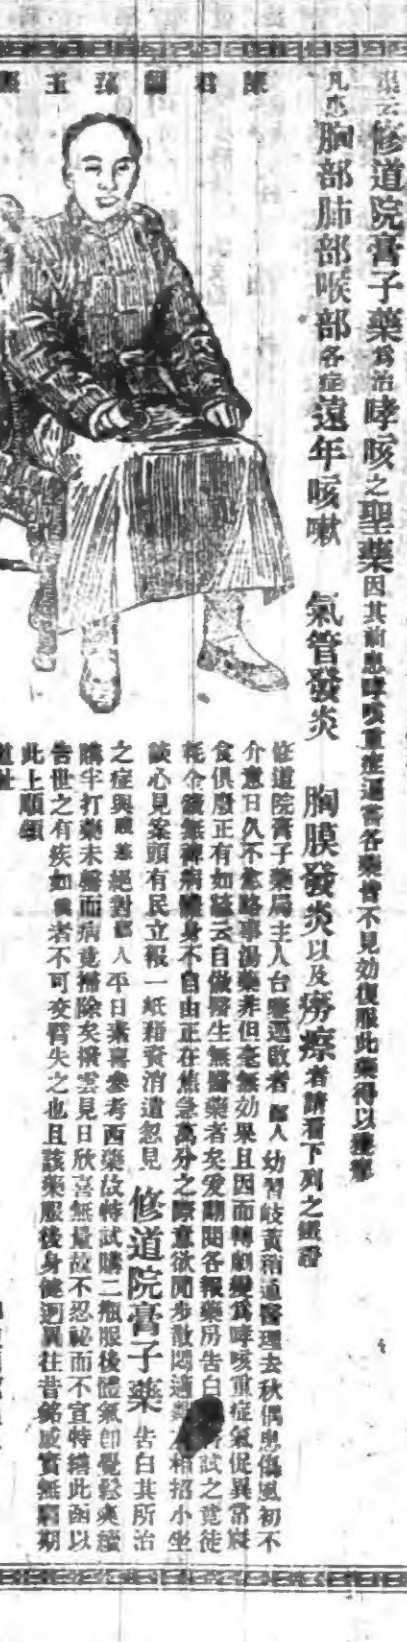 修道院膏子藥為治哮咳之聖藥因其前患哮咳重症遍嘗各藥皆不見効復服此藥得以
凡患胸部肺部喉部各症遠年咳嗽 氣管發炎 胸膜發炎以及癆瘵者請看下列之證
君
主
修道院膏子藥局主人台鑒 人幼習岐黃稍道醫理去秋偶患傷風初不
介意日久不愈 湯藥非但毫無効果且因而轉劇變為哮咳重症氣促異常寢
食俱廢正有如 云自做醫生無醫藥者矣爰翻閱各報藥房告白 試之竟徒
耗金錢無裨病體身不自由正在焦急萬分之際意欲閒步散悶適 相招小坐
談心見案頭有民立報一紙藉資消遣忽見 修道院膏子藥 告白其所治
之症與 恙絕對 人平日素喜參考西藥故特試購二瓶服後體氣卽覺 爽續
購半打藥未罄而病竟掃除矣撥雲見日欣喜無量故不忍祕而不宣特繕此函以
告世之有疾如 者不可交臂失之也且該藥服後身健迥異往昔銘感實無
此上順頌